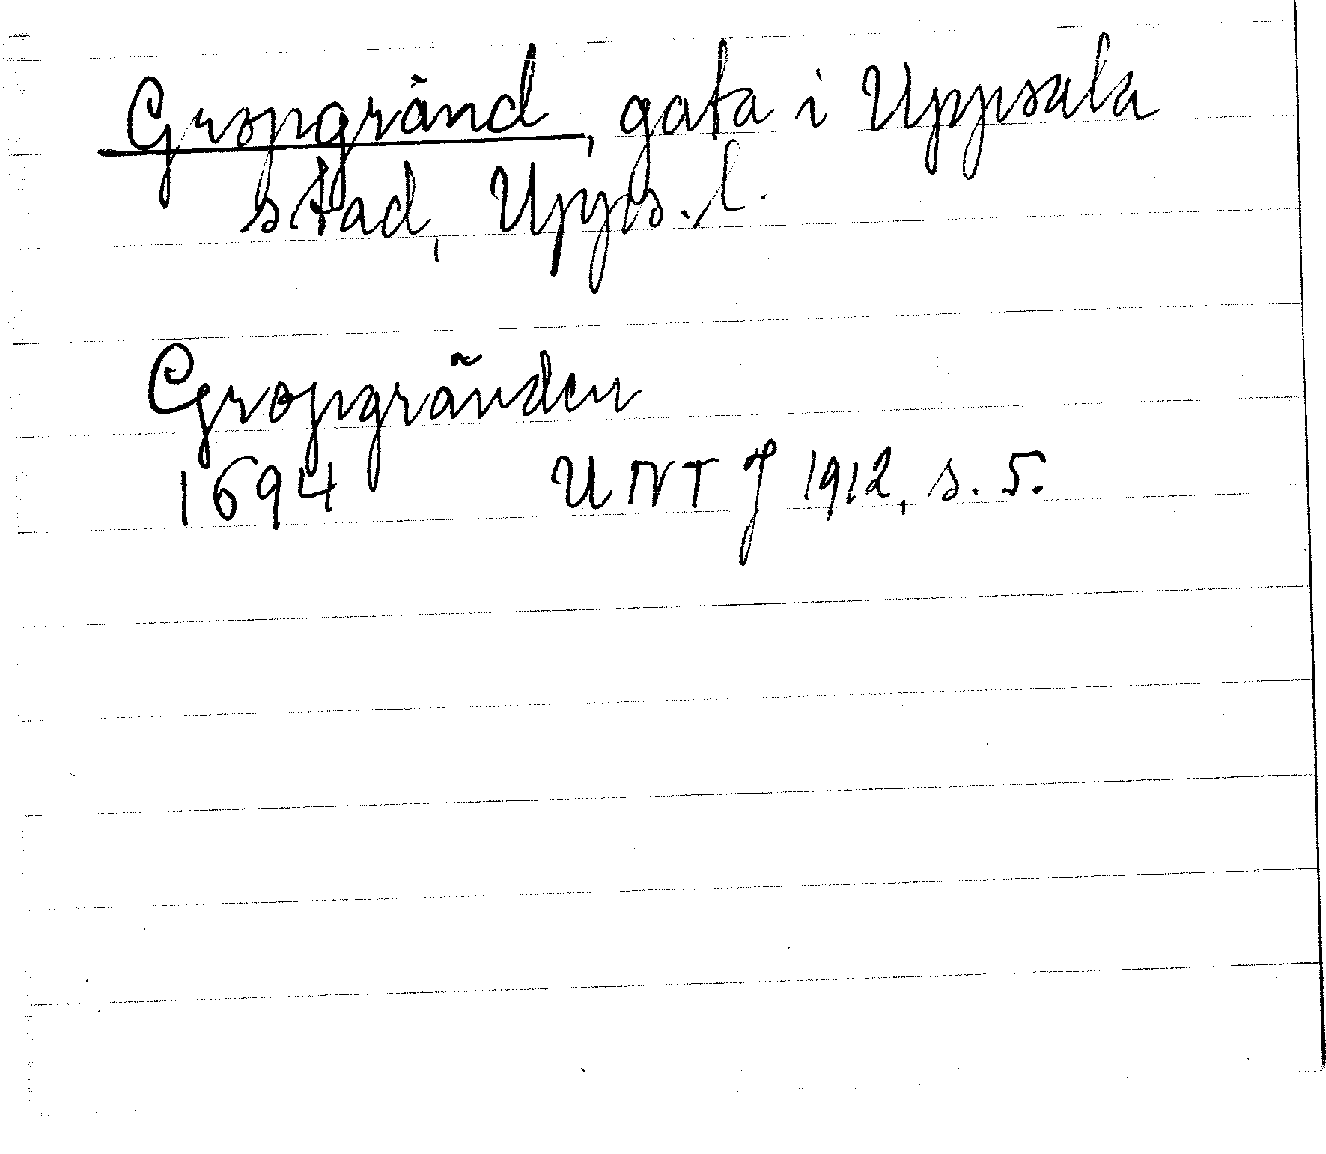 Gropgränd, gata i Uppsala
stad, Upps. l.
Gropgränden
1694 UNT J 1912, s. 5.